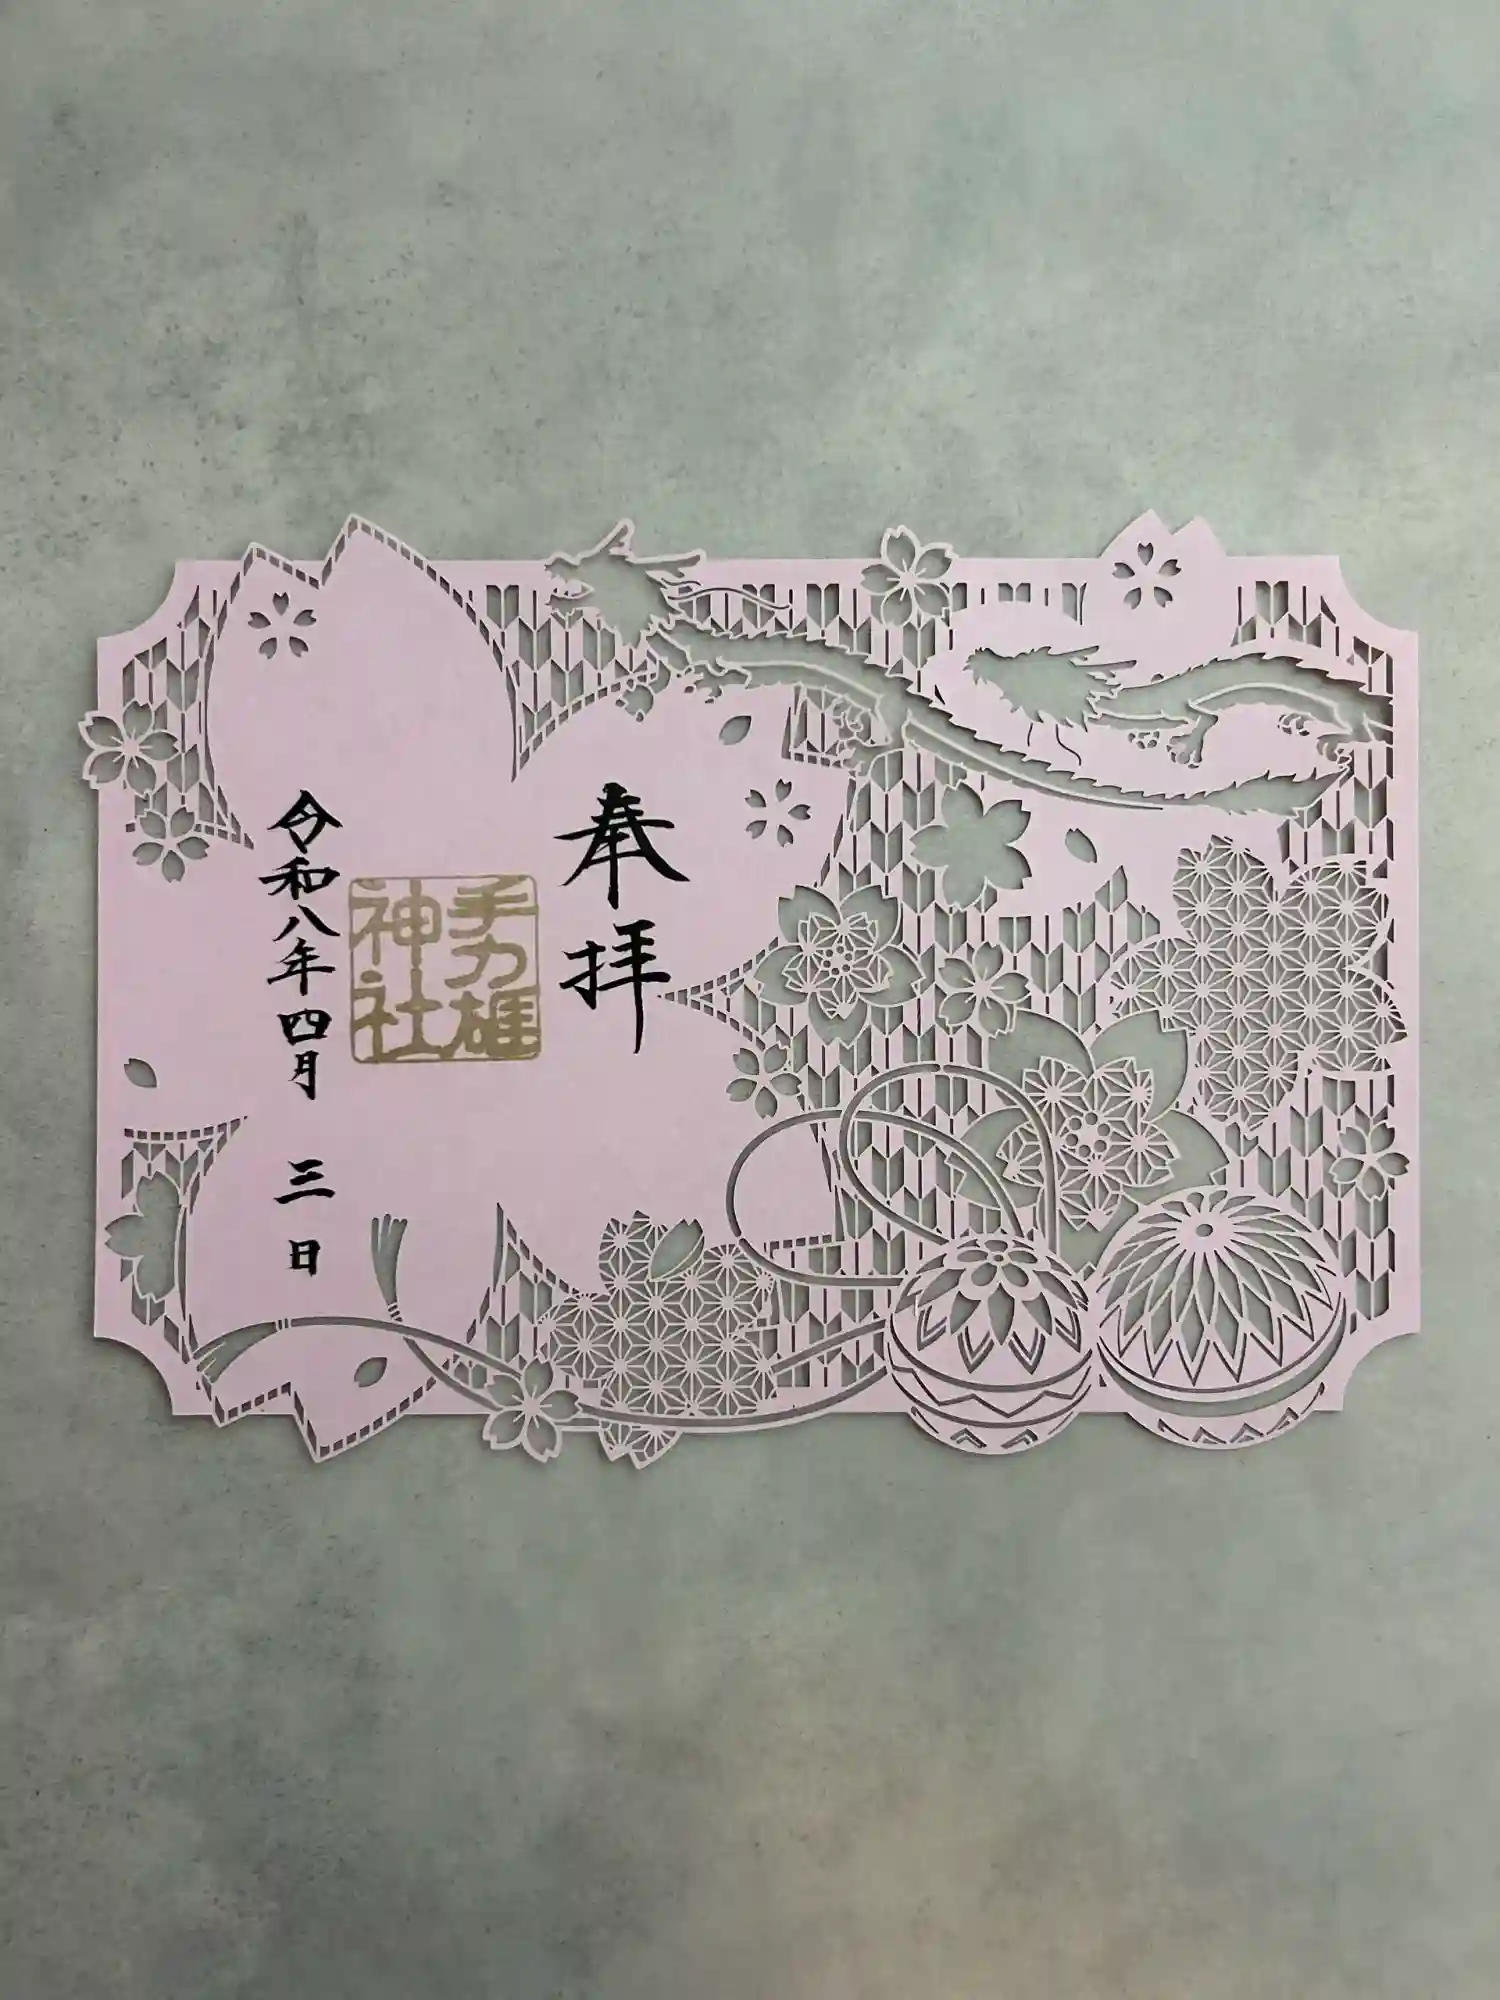 奉拝
手力雄
神社
令和八年四月三日